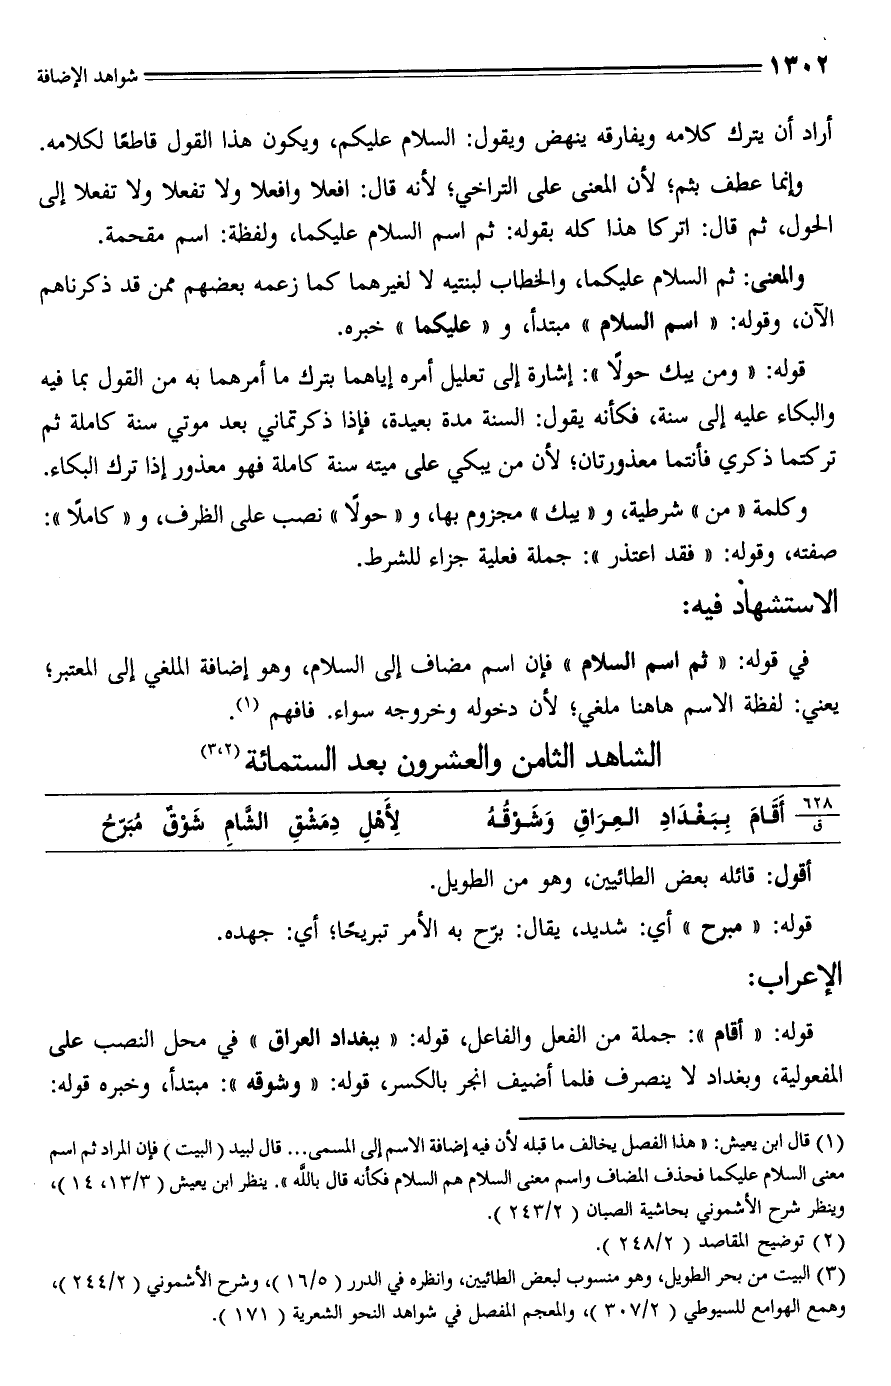 ١٣٠٢ شواهد الإضافة
أراد أن يترك كلامه ويفارقه ينهض ويقول: السلام عليكم، ويكون هذا القول قاطعًا لكلامه.
وإنما عطف بثم؛ لأن المعنى على التراخي؛ لأنه قال: افعلا وافعلا ولا تفعلا ولا تفعلا إلى
الحول، ثم قال: اتركا هذا كله بقوله: ثم اسم السلام عليكما، ولفظة: اسم مقحمة.
والمعنى: ثم السلام عليكما، والخطاب لبنتيه لا لغيرهما كما زعمه بعضهم ممن قد ذكرناهم
الآن، وقوله: « اسم السلام » مبتدأ، و « عليكما » خبره.
قوله: « ومن يبك حولًا »: إشارة إلى تعليل أمره إياهما بترك ما أمرهما به من القول بما فيه
والبكاء عليه إلى سنة، فكأنه يقول: السنة مدة بعيدة، فإذا ذكرتماني بعد موتي سنة كاملة ثم
تركتما ذكري فأنتما معذورتان؛ لأن من يبكي على ميته سنة كاملة فهو معذور إذا ترك البكاء.
وكلمة « من » شرطية، و « يبك » مجزوم بها، و « حولًا » نصب على الظرف، و « كاملًا »:
صفته، وقوله: « فقد اعتذر »: جملة فعلية جزاء للشرط.
الاستشهاد فيه:
في قوله: « ثم اسم السلام » فإن اسم مضاف إلى السلام، وهو إضافة الملغي إلى المعتبر؛
يعني: لفظة الاسم هاهنا ملغي؛ لأن دخوله وخروجه سواء. فافهم (١).
الشاهد الثامن والعشرون بعد الستمائة (٣،٢)
٦٢٨
ق
أَقَامَ بِبَغْدَادِ العِرَاقِ وَشَوْقُهُ لِأَهْلِ دِمَشْقِ الشَّامِ شَوْقٌ مُبَرِّحُ
أقول: قائله بعض الطائيين، وهو من الطويل.
قوله: « مبرح » أي: شديد، يقال: برّح به الأمر تبريحًا؛ أي: جهده.
الإعراب:
قوله: « أقام »: جملة من الفعل والفاعل، قوله: « ببغداد العراق » في محل النصب على
المفعولية، وبغداد لا ينصرف فلما أضيف انجر بالكسر، قوله: « وشوقه »: مبتدأ، وخبره قوله:
(١) قال ابن يعيش: « هذا الفصل يخالف ما قبله لأن فيه إضافة الاسم إلى المسمى... قال لبيد ( البيت ) فإن المراد ثم اسم
معنى السلام عليكما فحذف المضاف واسم معنى السلام هم السلام فكأنه قال باللَّه ». ينظر ابن يعيش ( ١٣/٣، ١٤ )،
وينظر شرح الأشموني بحاشية الصبان ( ٢٤٣/٢ ).
(٢) توضيح المقاصد ( ٢٤٨/٢ ).
(٣) البيت من بحر الطويل، وهو منسوب لبعض الطائيين، وانظره في الدرر ( ١٦/٥ )، وشرح الأشموني ( ٢٤٤/٢ )،
وهمع الهوامع للسيوطي ( ٣٠٧/٢ )، والمعجم المفصل في شواهد النحو الشعرية ( ١٧١ ).